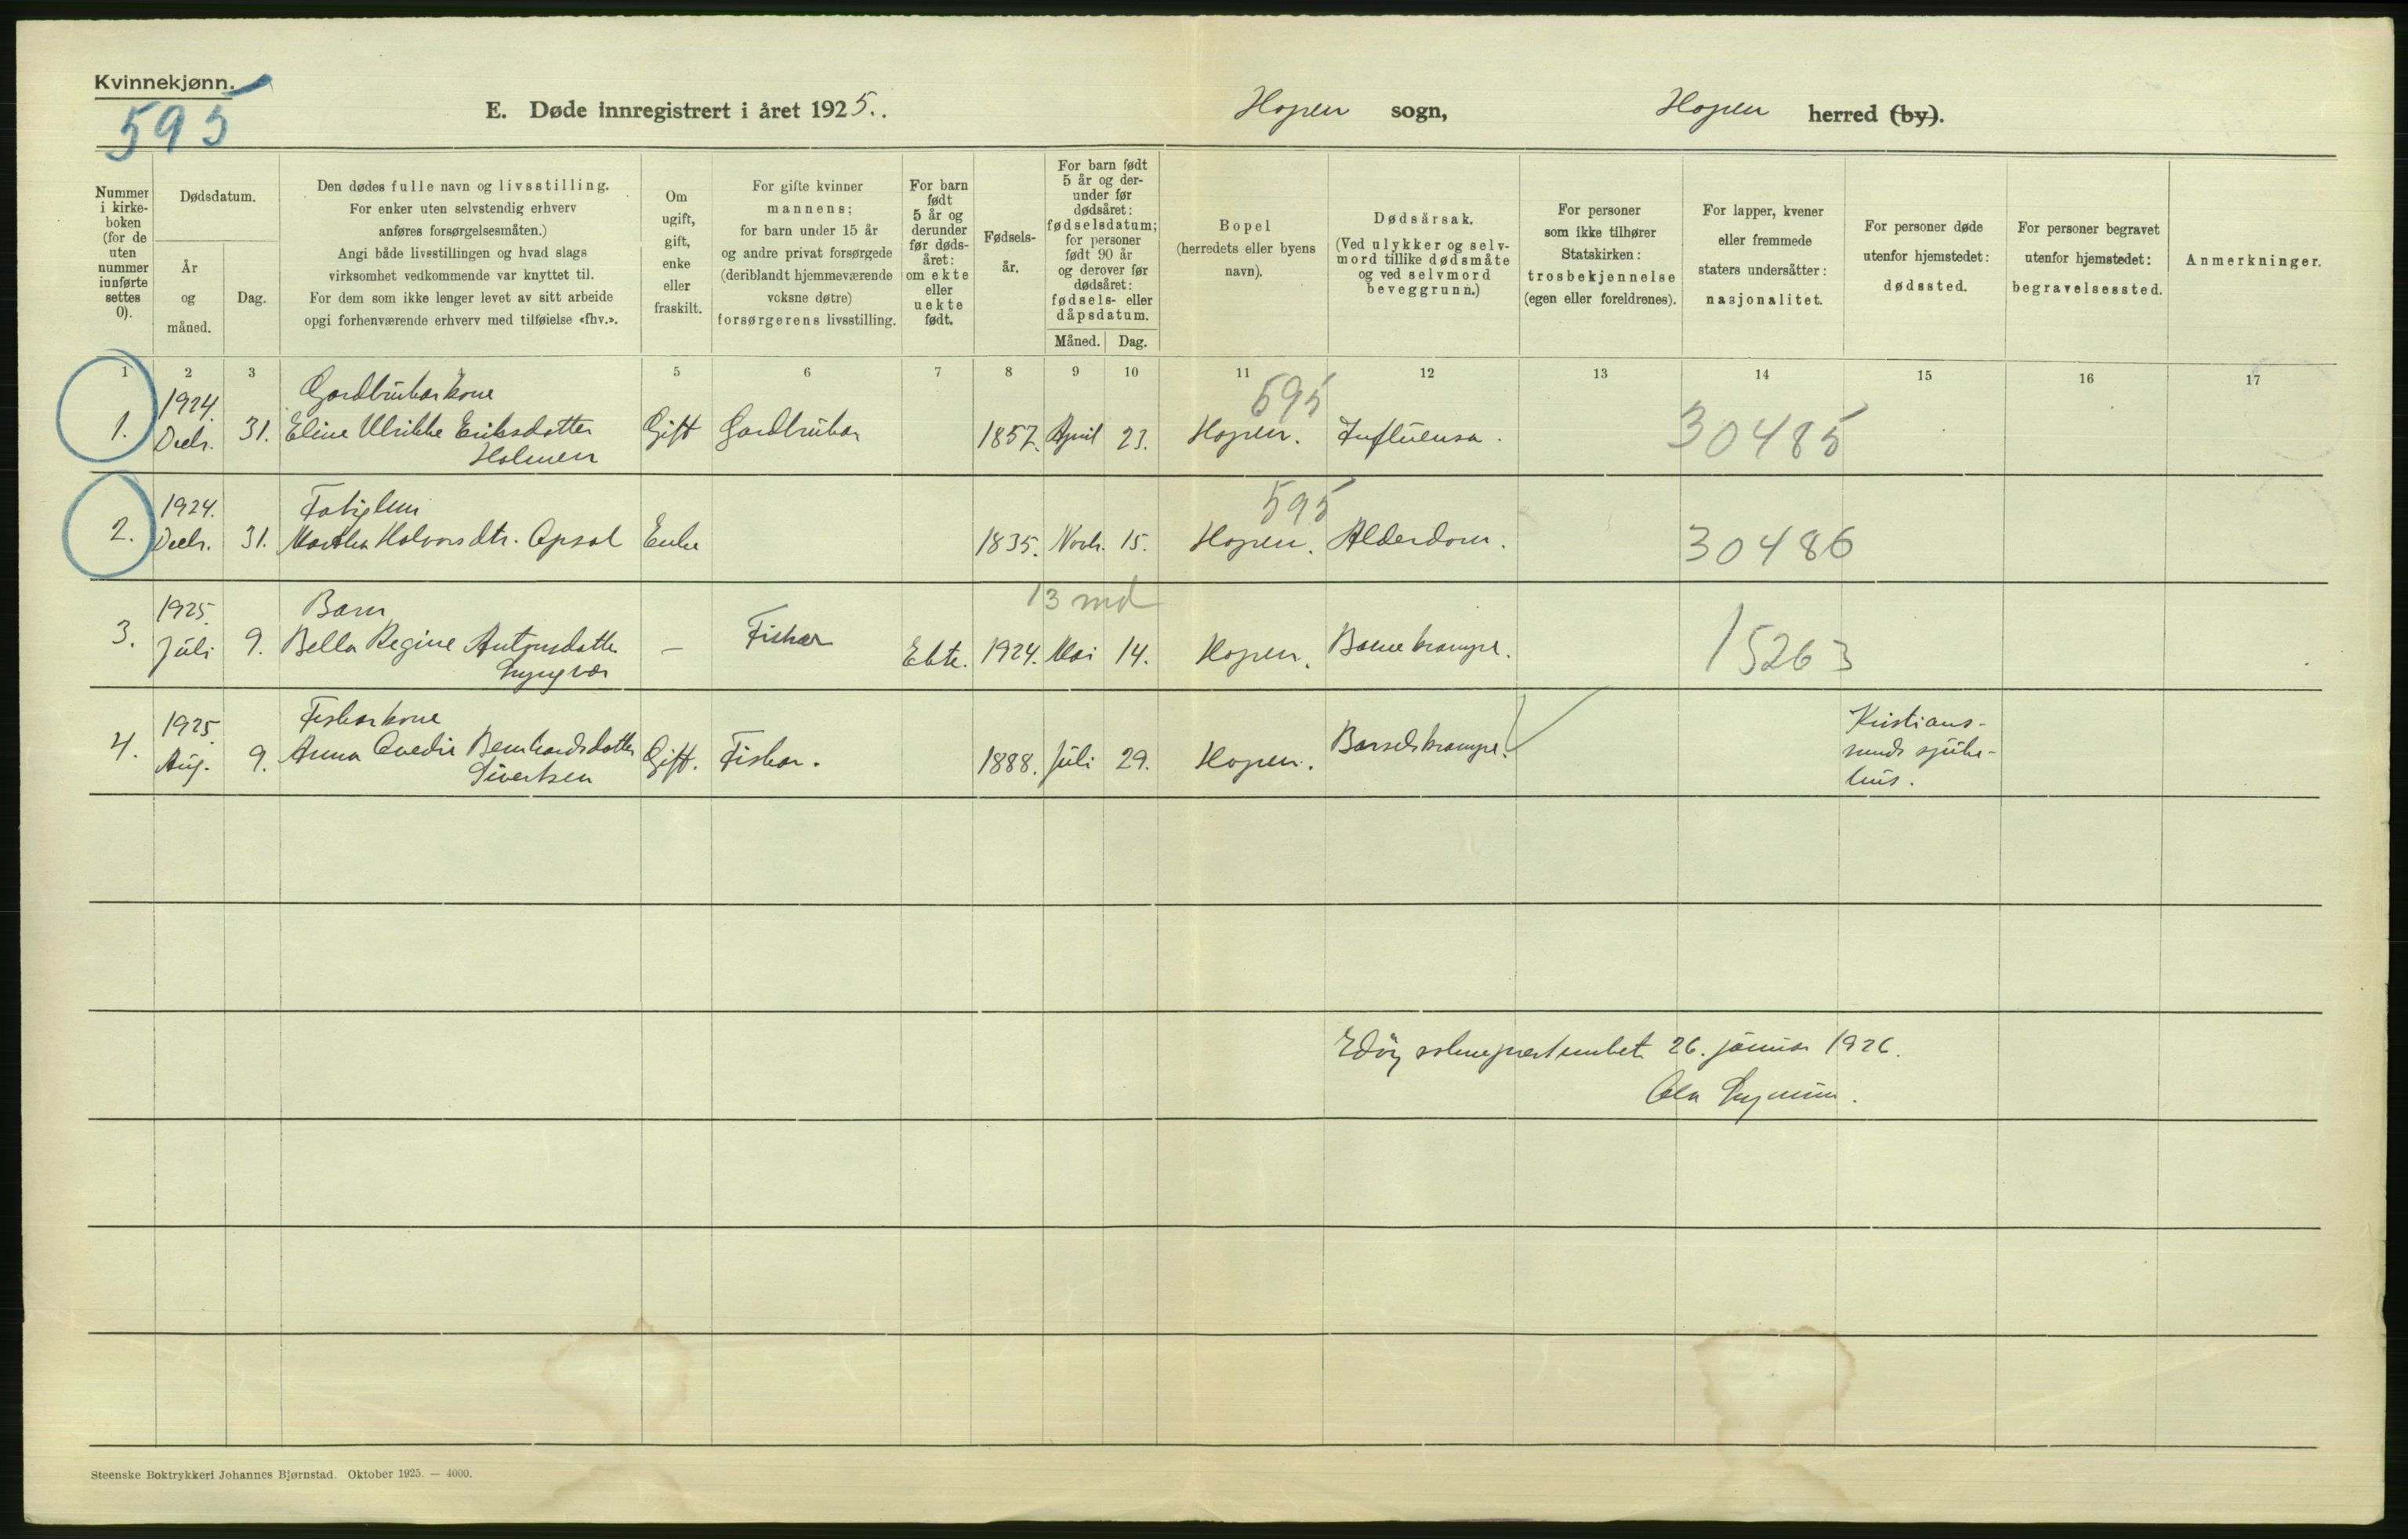 Kvinnekjønn.
595
E. Døde innregistrert i året 1925.
Hopen sogn,
Hopen herred (by).
Nummer i kirke-boken (for de uten nummer innførte settes 0).
Dødsdatum.
År og måned.
Dag.
Den dødes fulle navn og livsstilling.
For enker uten selvstendig erhverv
anføres forsørgelsesmåten.)
Angi både livsstillingen og hvad slags
virksomhet vedkommende var knyttet til.
For dem som ikke lenger levet av sitt arbeide
opgi forhenværende erhverv med tilføielse «fhv.».
Om ugift, gift, enke eller fraskilt.
For gifte kvinner
mannens;
for barn under 15 år
og andre privat forsørgede
(deriblandt hjemmeværende
voksne døtre)
forsørgerens livsstilling.
For barn født 5 år og derunder før døds-året: om ekte eller uekte født.
Fødsels-år.
For barn født 5 år og der-under før dødsåret: fødselsdatum; for personer født 90 år og derover før dødsåret: fødsels- eller dåpsdatum.
Måned. Dag.
Bopel
(herredets eller byens
navn).
Dødsårsak.
(Ved ulykker og selv-
mord tillike dødsmåte
og ved selvmord
beveggrunn.)
For personer
som ikke tilhører
Statskirken:
trosbekjennelse
(egen eller foreldrenes).
For lapper, kvener
eller fremmede
staters undersåtter:
nasjonalitet.
For personer døde
utenfor hjemstedet:
dødssted.
For personer begravet
utenfor hjemstedet:
begravelsessted.
Anmerkninger.
1 2 3 5 6 7 8 9 10 11 12 13 14 15 16 17
1924. Gardbrukarkone 595
1. Decbr. 31. Eline Ulrikke Eriksdatter Gift Gardbrukar 1857. April 23. Hopen. Influensa. 30485
Holmen
1924. Fatiglem 595
2. Decbr. 31. Martha Halvorsdtr. Opsal Enke 1835. Novb. 15. Hopen. Alderdom. 30486
1925. Barn 13 md
3. Juli 9. Bella Regine Antonsdatter — Fiskar Ekte. 1924. Mai 14. Hopen. Barnekrampe. 15263
Lyngvær
1925. Fiskarkone Kristians-
4. Aug. 9. Anna Bernhardsdatter Gift. Fiskar. 1888. Juli 29. Hopen. Barselskrampe. sunds sjuke-
Sivertsen hus.
Edøy sokneprestembet 26. januar 1926.
Ola
Steenske Boktrykkeri Johannes Bjørnstad. Oktober 1925. — 4000.